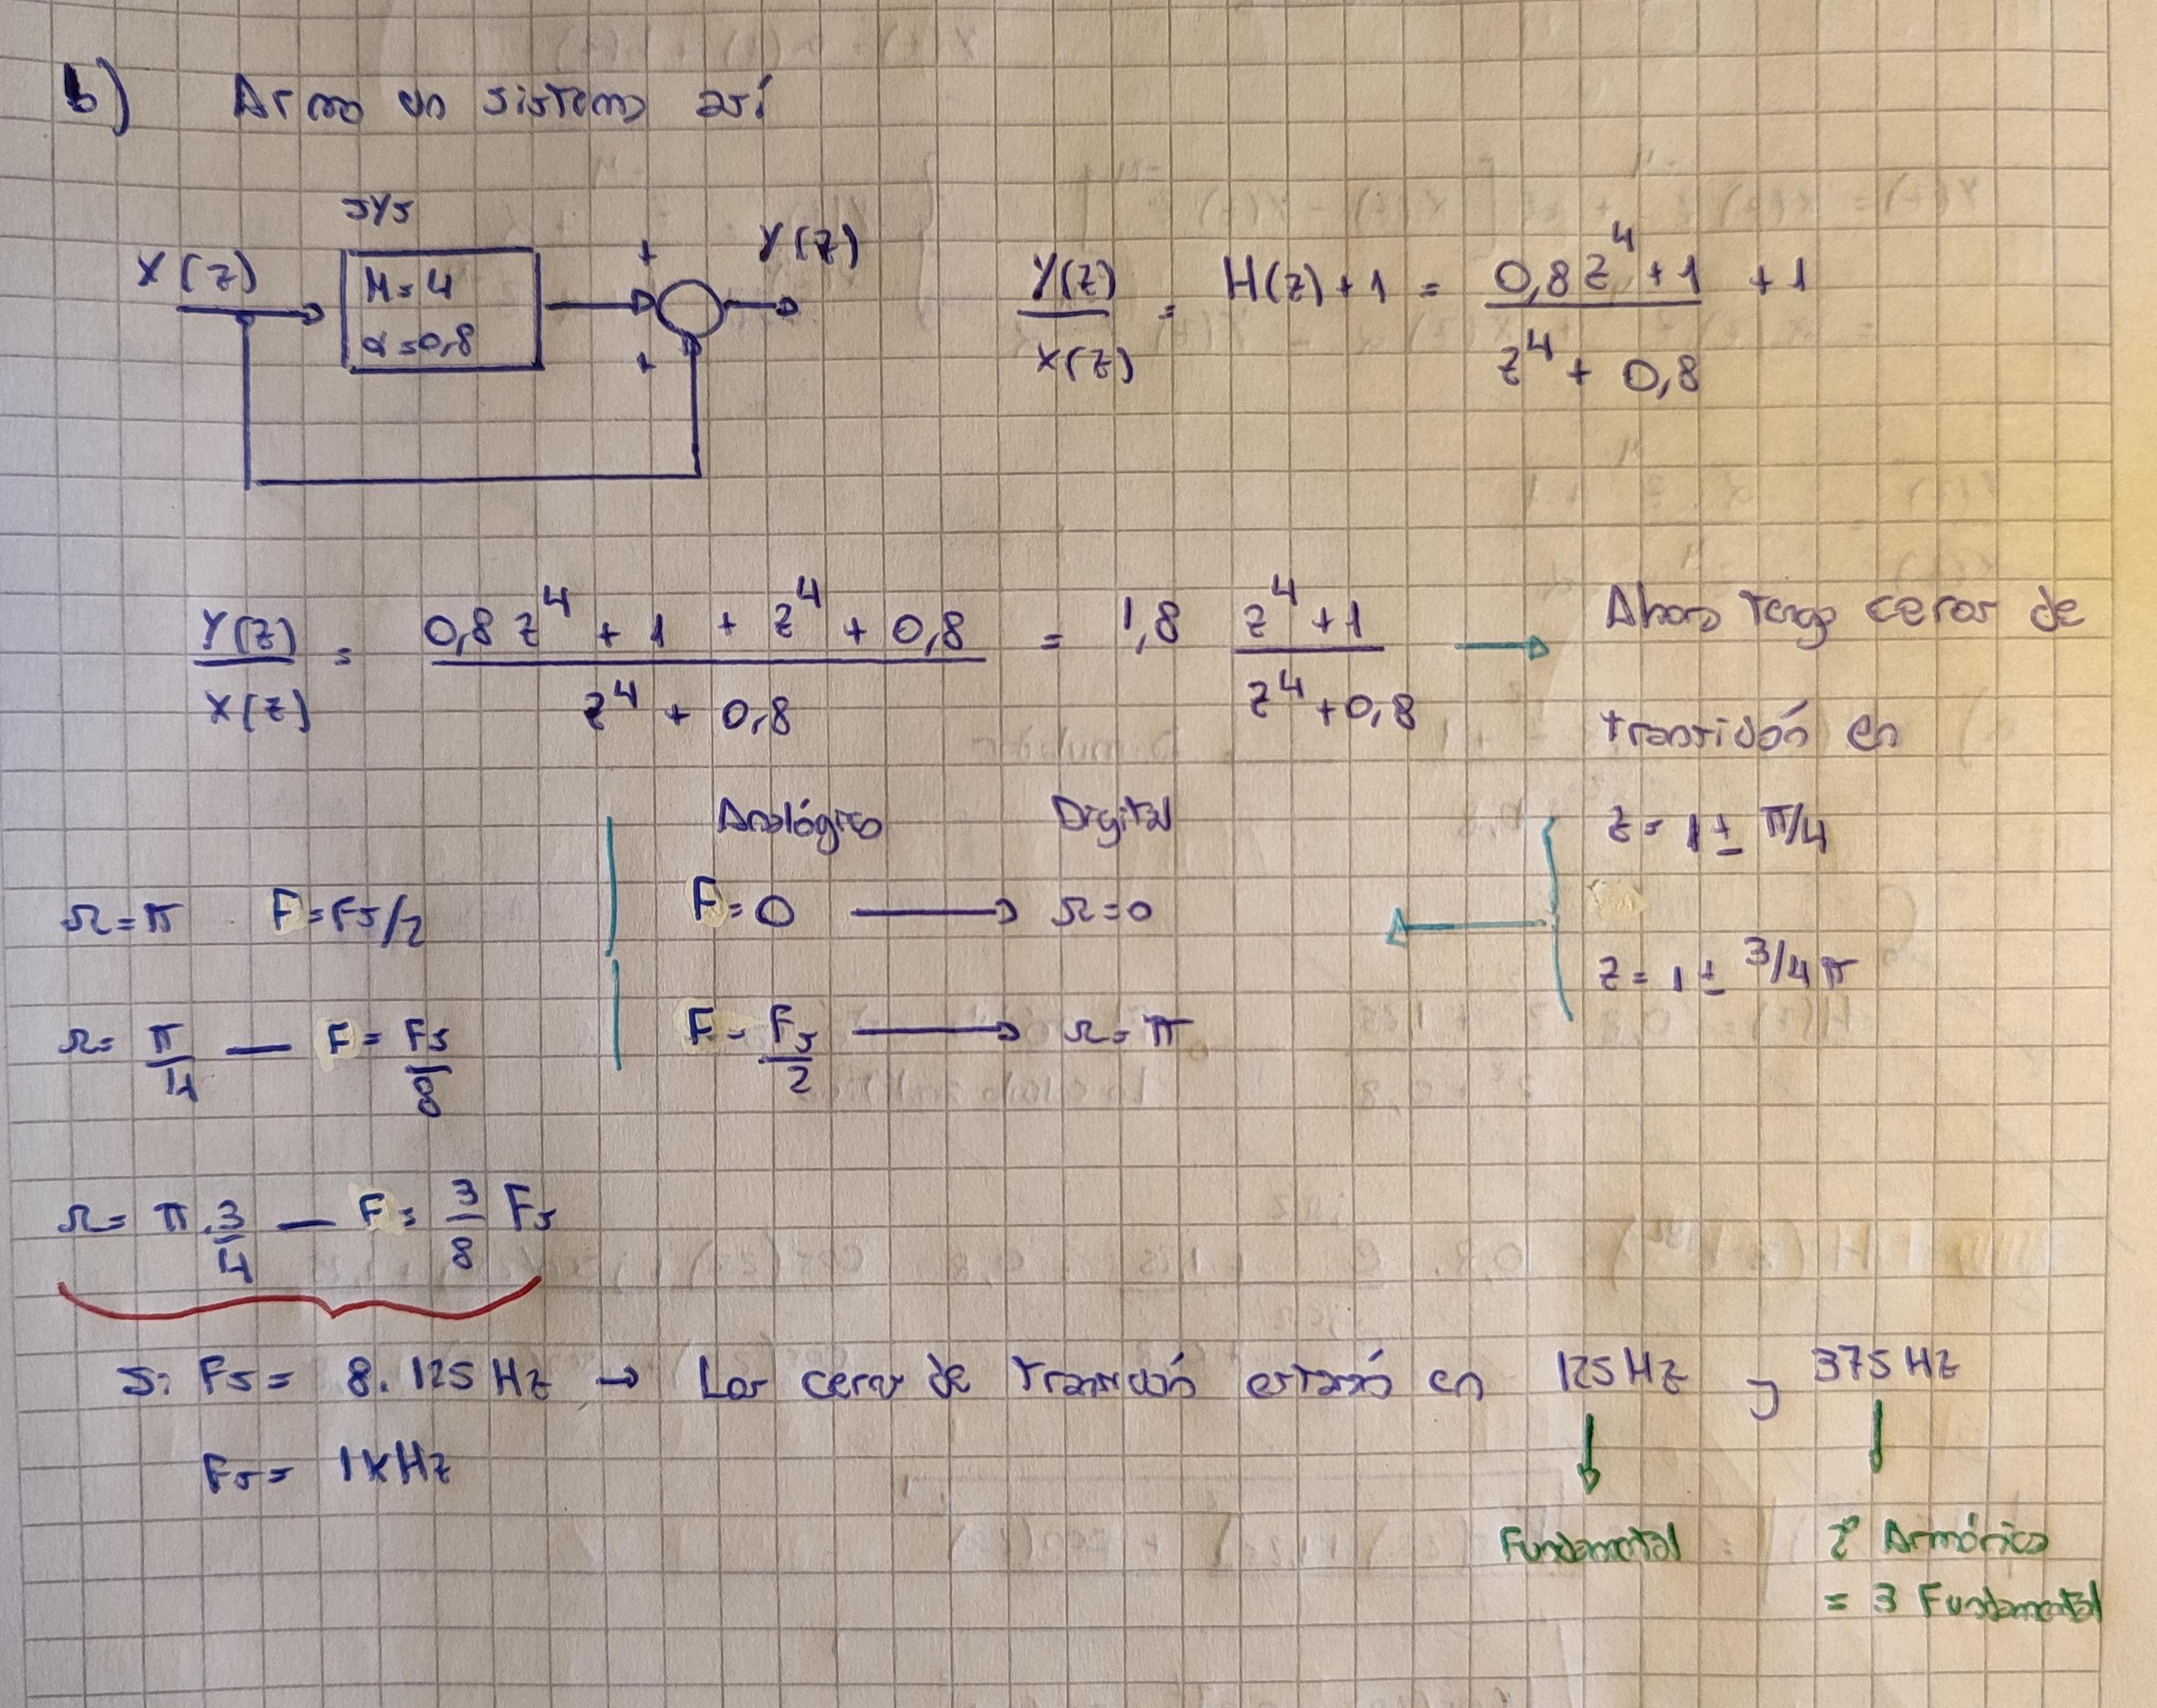 b) Armo un sistema así
SYS
X(z)
M=4
α=0,8
+
+
Y(z)
Y(z)/X(z) = H(z)+1 = (0,8z^4+1)/(z^4+0,8) + 1
Y(z)/X(z) = (0,8z^4 + 1 + z^4 + 0,8)/(z^4 + 0,8) = 1,8 (z^4+1)/(z^4+0,8) → Ahora tengo ceros de
transmisión en
z = 1 ± π/4
z = 1 ± 3/4 π
Analógico Digital
F=0 → Ω=0
F = Fs/2 → Ω = π
Ω=π F=Fs/2
Ω= π/4 — F= Fs/8
Ω= π.3/4 — F= 3/8 Fs
Si Fs= 8.125Hz → Los ceros de transmisión estarán en 125Hz y 375Hz
Fs= 1KHz
Fundamental
2° Armónica
= 3 Fundamental